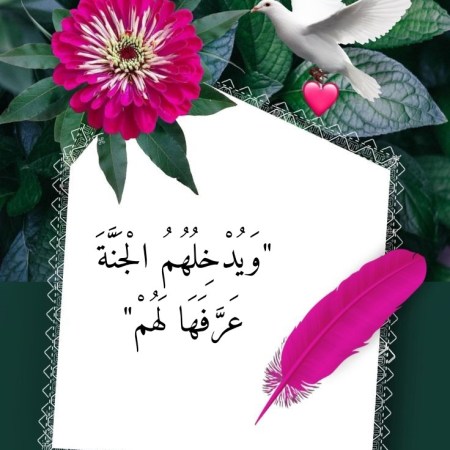 "وَيُدْخِلُهُمُ الْجَنَّةَ
عَرَّفَهَا لَهُمْ"